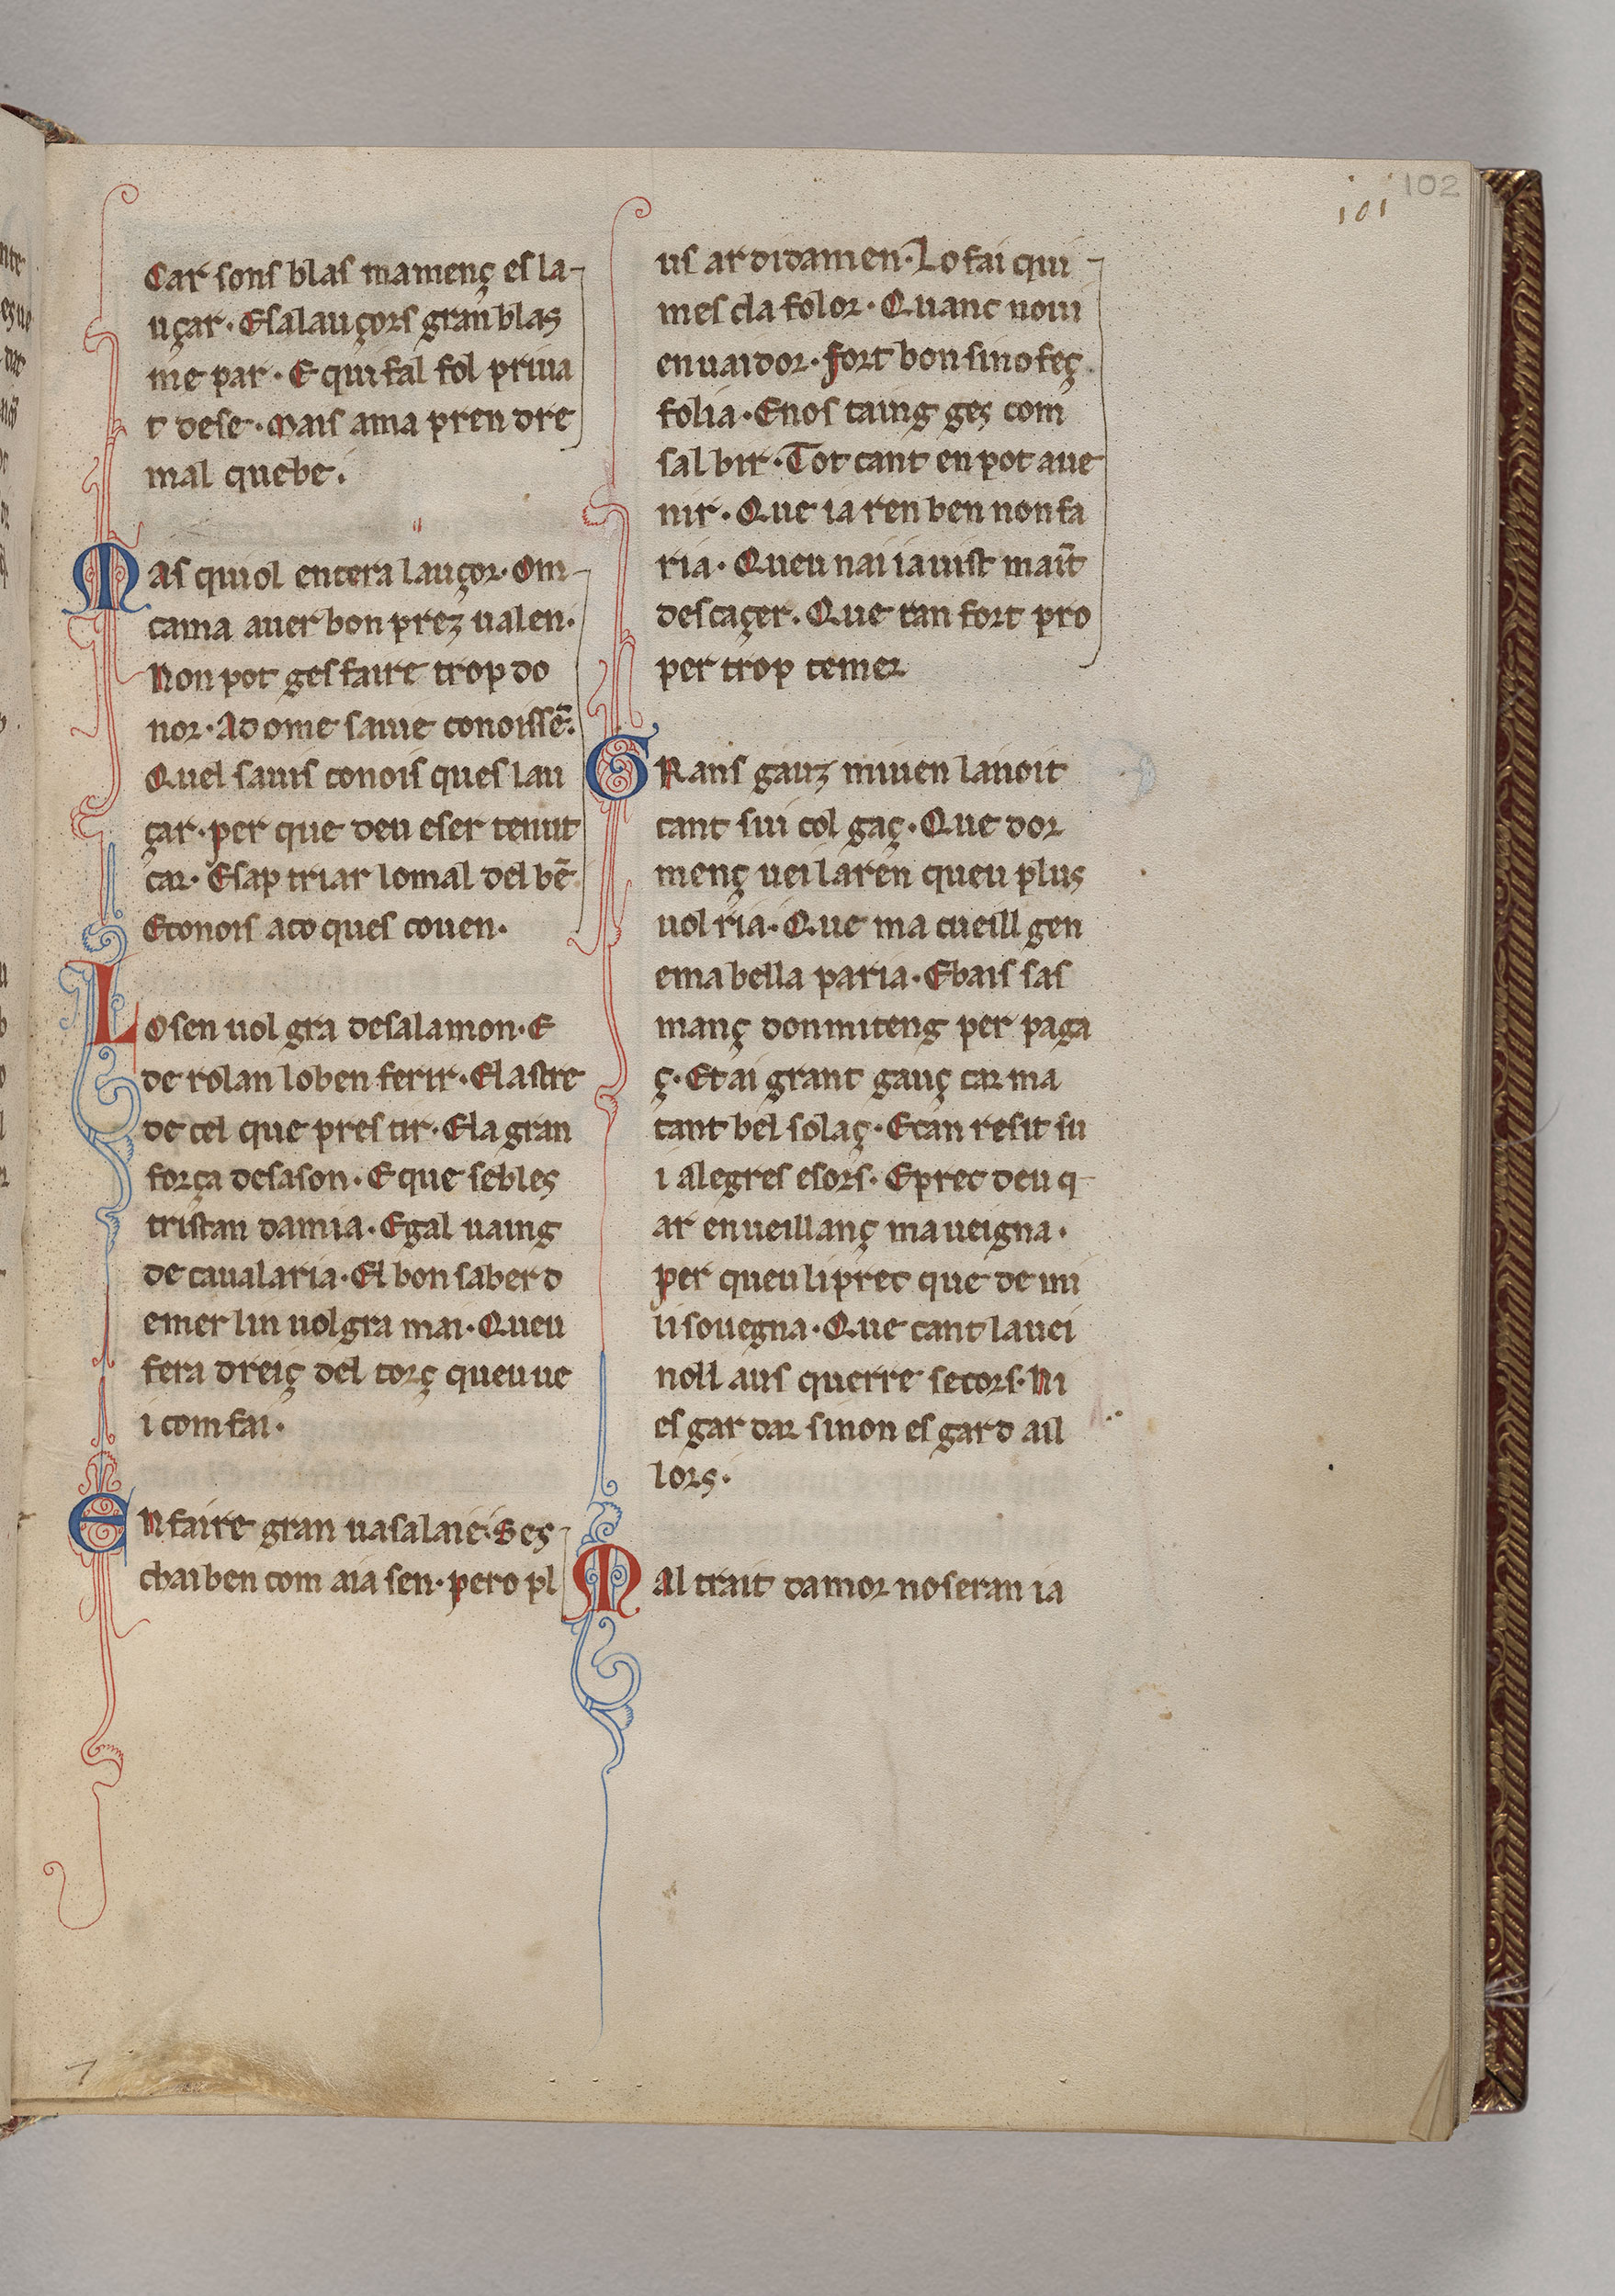 102
101
Car sons blas mamenç es la-
uçar. Esalauçors gran blas
me par. E qui fal fol priua
t dese. Mais ama pren dre
mal quebe.
Mas quiol entera lauçor. Om
cama auer bon prez ualen.
Non pot ges faire trop do
nor. Ad ome saine conoissē.
Quel sauis conois ques lau
çar. per que deu eser tenut
car. Esap triar lomal del bē
Econois aco ques couen.
Losen uol gra desalamon. E
de rolan loben ferir. El astre
de cel que pres tir. Ela gran
força desason. E que sebles
tristan damia. Egal uaing
de caualaria. El bon saber d
emer lin uolgra mai. Queu
fera dreiç del torç queu ue
i com fai.
En faire gran uasalaie. Ges
chai ben com aia sen. pero pl
us ar didamen. Lo fai qui
mes cla folor. Quanc noui
enuaidor. fort bon sino feç
folia. Enos taing ges com
sal bir. Tot cant en pot aue
nir. Que ia ren ben non fa
ria. Queu nai ia uist mait̄
descaçer. Que tan fort pro
per trop temer
GRans gauz miuen lanoit
cant sui col gaç. Que dor
menç uei laren queu plus
uol ria. Que ma cueill gen
ema bella paria. Ebais sas
manç don miteng per paga
ç. Et ai grant gauç car ma
tant bel solaç. Ecan resit su
i alegres esors. Eprec deu q
ar enueillanç ma ueigna.
per queu li prec que de mi
li souegna. Que cant lauei
noll aus querre secors. Ni
es gar dar sinon es gard ail
lors.
Mal trait damor noseran ia